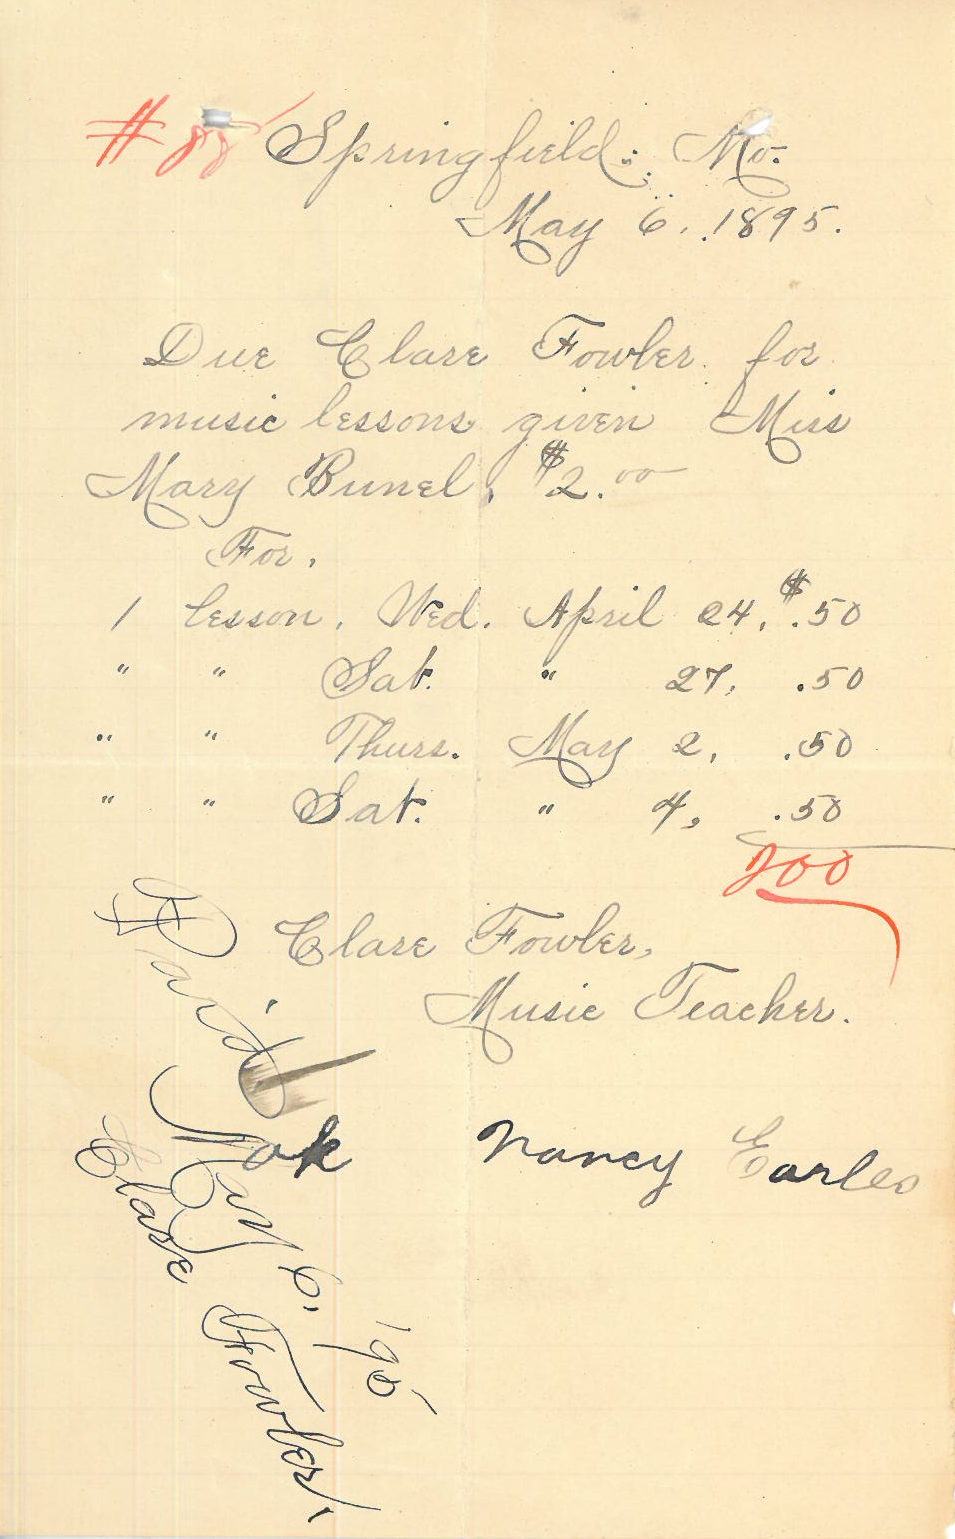 # 88 Springfield, Mo.
May 6, 1895.
Due Clare Fowler for
music lessons given Miss
Mary Bunel, $2.00
For,
1 lesson, Wed. April 24, $.50
" " Sat. " 27, .50
" " Thurs. May 2, .50
" " Sat. " 4, .50
200
Clare Fowler,
Music Teacher.
ok Nancy Earles
Paid
May 6, '95
Clare Fowler.